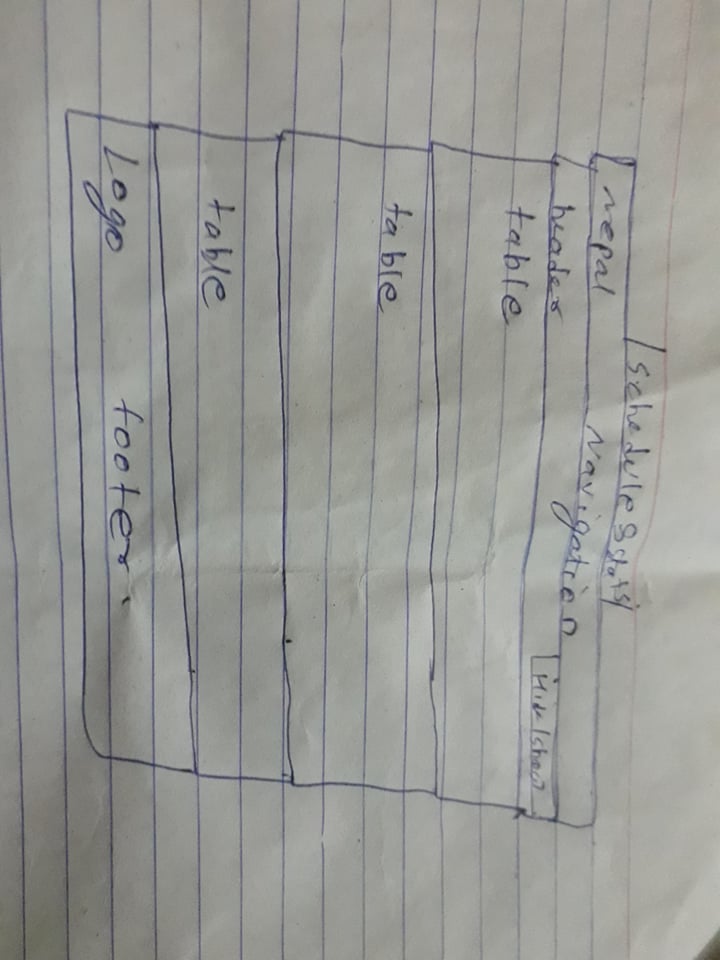 /Schedule & stats/
Nepal Navigation
header
Hide/show
table
table
table
Logo footer.